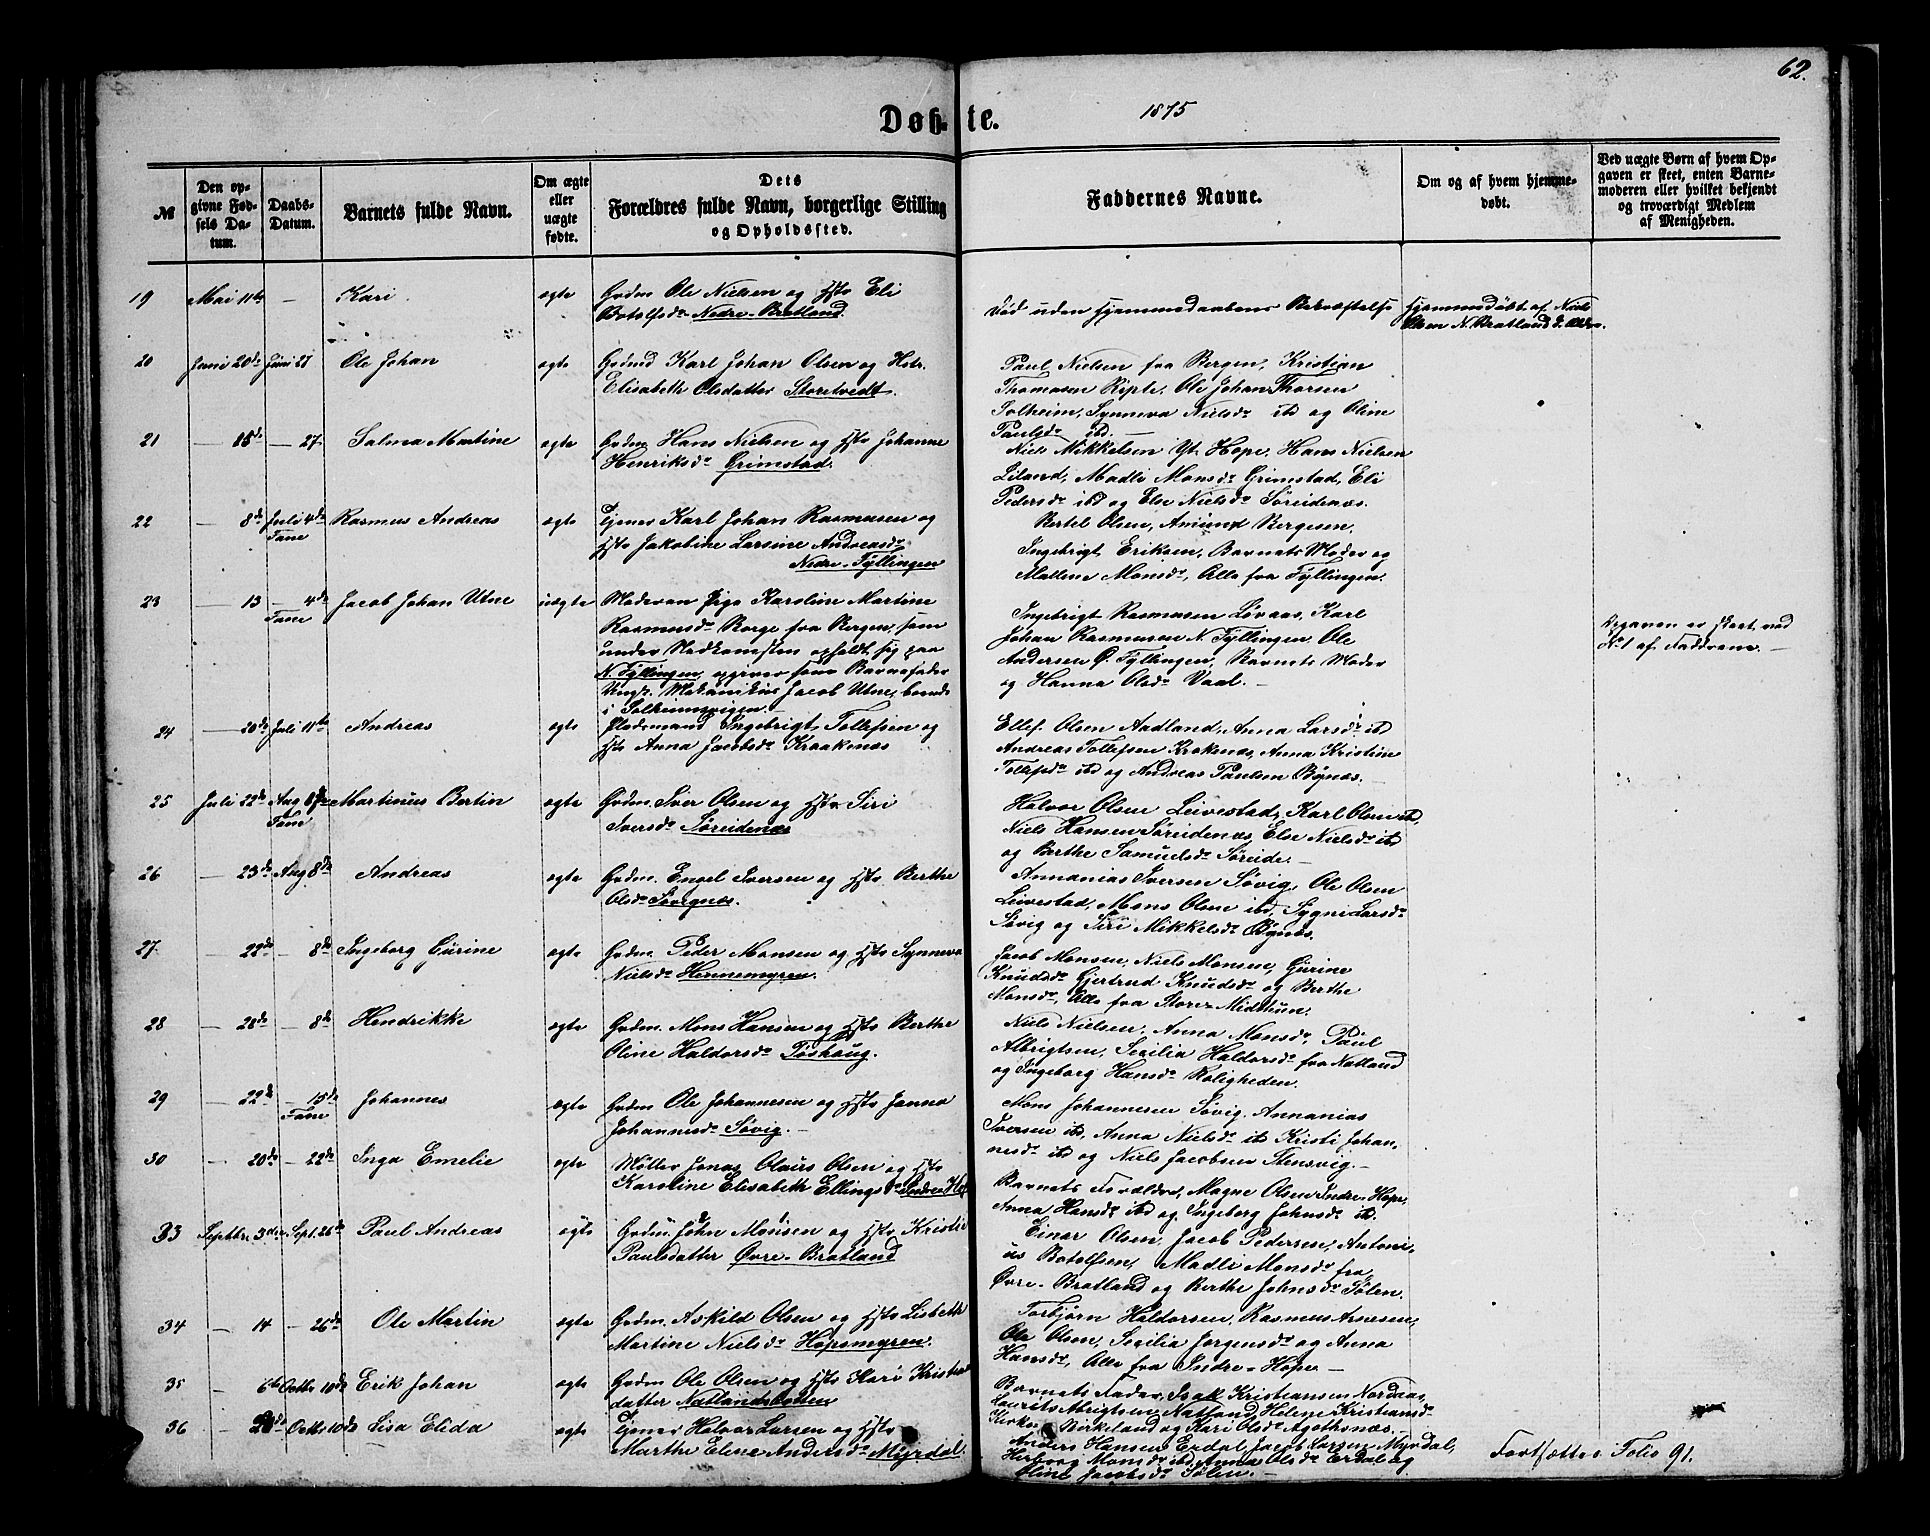 62.
Døb-te.
1875
№
Den op-
givne Fød-
sels Da-
tum.
Daabs-
Datum.
Barnets fulde Navn.
Om ægte
eller
uægte
fødte.
Dets
Forældres fulde Navn, borgerlige Stilling
og Opholdssted.
Faddernes Navne.
Om og af hvem hjemme-
døbt.
Ved uægte Børn af hvem Op-
gaven er skeet, enten Barne-
moderen eller hvilket bekjendt
og troværdigt Medlem
af Menigheden.
19 Mai 11te — Kari ægte Grdm. Ole Nielsen og Hstr Eli
Botolfsdr Nedre-Bratland.
Død uden Hjemmedaabens Bekræftelse
Hjemmedöbt af Niels
Olsen N. Bratland
20 Juni 20de Juni 27 Ole Johan ægte Grdmd Karl Johan Olsen og Hstr.
Elisabeth Olsdatter Storetvedt.
Paul Nielsen fra Bergen, Kristian
Thomasen Ripte, Ole Johan Thorsen
Solheim, Synneva Nielsdr ibd og Oline
Paulsdr ibd.
21 — 15de — 27. Salma Martine ægte Grdm. Hans Nielsen og Hstr Johanne
Henriksdr Grimstad.
Niels Mikkelsen Yt. Hope, Hans Nielsen
Liland, Madli Monsdr Grimstad, Eli
Pedersdr ibd og Else Nielsdr Søreidenæs.
22 — 8de Juli 4de Rasmus Andreas ægte Tjener Karl Johan Rasmussen og
Fane
Hstr Jakobine Larsine Andreasdr
Nedre-Tyllingen
Bertel Olsen, Amund Bergesen,
Ingebrigt Eriksen, Barnets Moder og
Mallene Monsdr, Alle fra Tyllingen.
23 — 13 — 4de Jacob Johan Utne uægte Moderen Pige Karoline Martine
Fane
Rasmusdr Borge fra Bergen, som
under Nedkomsten opholdt sig paa
N. Tyllingen, opgiver som Barnefader
Ungk. Mekanikus Jacob Utne, boende
i Solheimsvigen.
Ingebrigt Rasmusen Løvaas, Karl
Johan Rasmusen N. Tyllingen, Ole
Andersen Ø. Tyllingen, Barnets Moder
og Hanna Olsdr Vaal.
Opgaven er skeet ved
No 1 af Fadderne.
24 — 20de Juli 11te Andreas ægte Pladsmand Ingebrigt Tollefsen og
Hstr Anna Jacobsdr Kraakenæs
Ellef Olsen Aadland, Anna Larsdr ibd
Andreas Tollefsen Krokenæs, Anna Kristine
Tollefsdr ibd og Andreas Paulsen Bønæs.
25 Juli 22de Aug 8de Martinus Bertin ægte Grdm. Iver Olsen og Hstr Siri
Fane
Iversdr Søreidenæs
Halvor Olsen Leivestad, Karl Olsen ibd,
Niels Hansen Søreidenæs, Else Nielsdr ibd
og Berthe Samuelsdr Søreide.
26 — 23de Aug 8de Andreas ægte Grdm. Engel Iversen og Hstr Berthe
Olsdr Søvignæs.
Annanias Iversen Søvig, Ole Olsen
Leivestad, Mons Olsen ibd, Sygni Larsdr
Søvig og Siri Mikkelsdr Bønæs.
27. — 22de — 8de Ingeborg Gurine ægte Grdm. Peder Monsen og Hstr Synneva
Nielsdr Hennemyren.
Jacob Monsen, Niels Monsen, Gurine
Knudsdr, Gjertrud Knudsdr og Berthe
Monsdr, Alle fra Store-Midttun.
28 — 28de — 8de Hendrikke ægte Grdm. Mons Hansen og Hstr Berthe
Oline Haldorsdr Toshaug.
Niels Nielsen, Anna Monsdr, Paul
Albrigtsen, Secilia Haldorsdr fra Natland
og Ingeborg Hansdr Roligheden.
29 — 22de — 15de Johannes ægte Grdm Ole Johannesen og Hstr Janna
Fane
Johannesdr Søvig.
Mons Johannesen Søvig, Annanias
Iversen ibd, Anna Nielsdr ibd Kristi Johan-
nesdr ibd og Niels Jacobsen Stensvig.
30 — 20de — 22de Inga Emelie ægte Møller Jonas Olaus Olsen og Hstr
Karoline Elisabeth Ellingsdr Indre Hop
Barnets Forældre, Magne Olsen Indre-Hope,
Anna Hansdr ibd og Ingeborg Johnsdr ibd.
33 Septbr. 3die Sept. 26de Paul Andreas ægte Grdm. John Monsen og Hstr Kristi
Paulsdatter Øvre-Bratland
Einar Olsen, Jacob Pedersen, Antoni-
us Botolfsen, Madli Monsdr fra
Øvre-Bratland og Berthe Johnsdr Tølen.
34 — 14 — 26de Ole Martin ægte Grdm. Askild Olsen og Hstr Lisbeth
Martine Nielsdr Hopsmyren.
Torbjørn Haldorsen, Rasmus Arnesen,
Ole Olsen, Secilia Jørgensdr og Anna
Hansdr, Alle fra Indre-Hope.
35 — 6te Octbr 10de Erik Johan ægte Grdm Ole Olsen og Hstr Kari Kristens
datter Natlandsbotten
Barnets Fader, Isak Kristiansen Nordaas,
Laurits Albrigtsen, Natland, Helene Kristiansdr
Kirke-Birkeland og Kari Olsdr Agothsnæs.
36 — Octbr 10de Lisa Elida ægte Tjener Halvor Larsen og Hstr
Marthe Elene Andersdr Myrdal.
Anders Hansen Erdal, Jacob Larsen Myrdal,
Herborg Monsdr ibd, Anna Olsdr Erdal og
Oline Jacobsdr Tølen.
Fortsættes Folio 91.